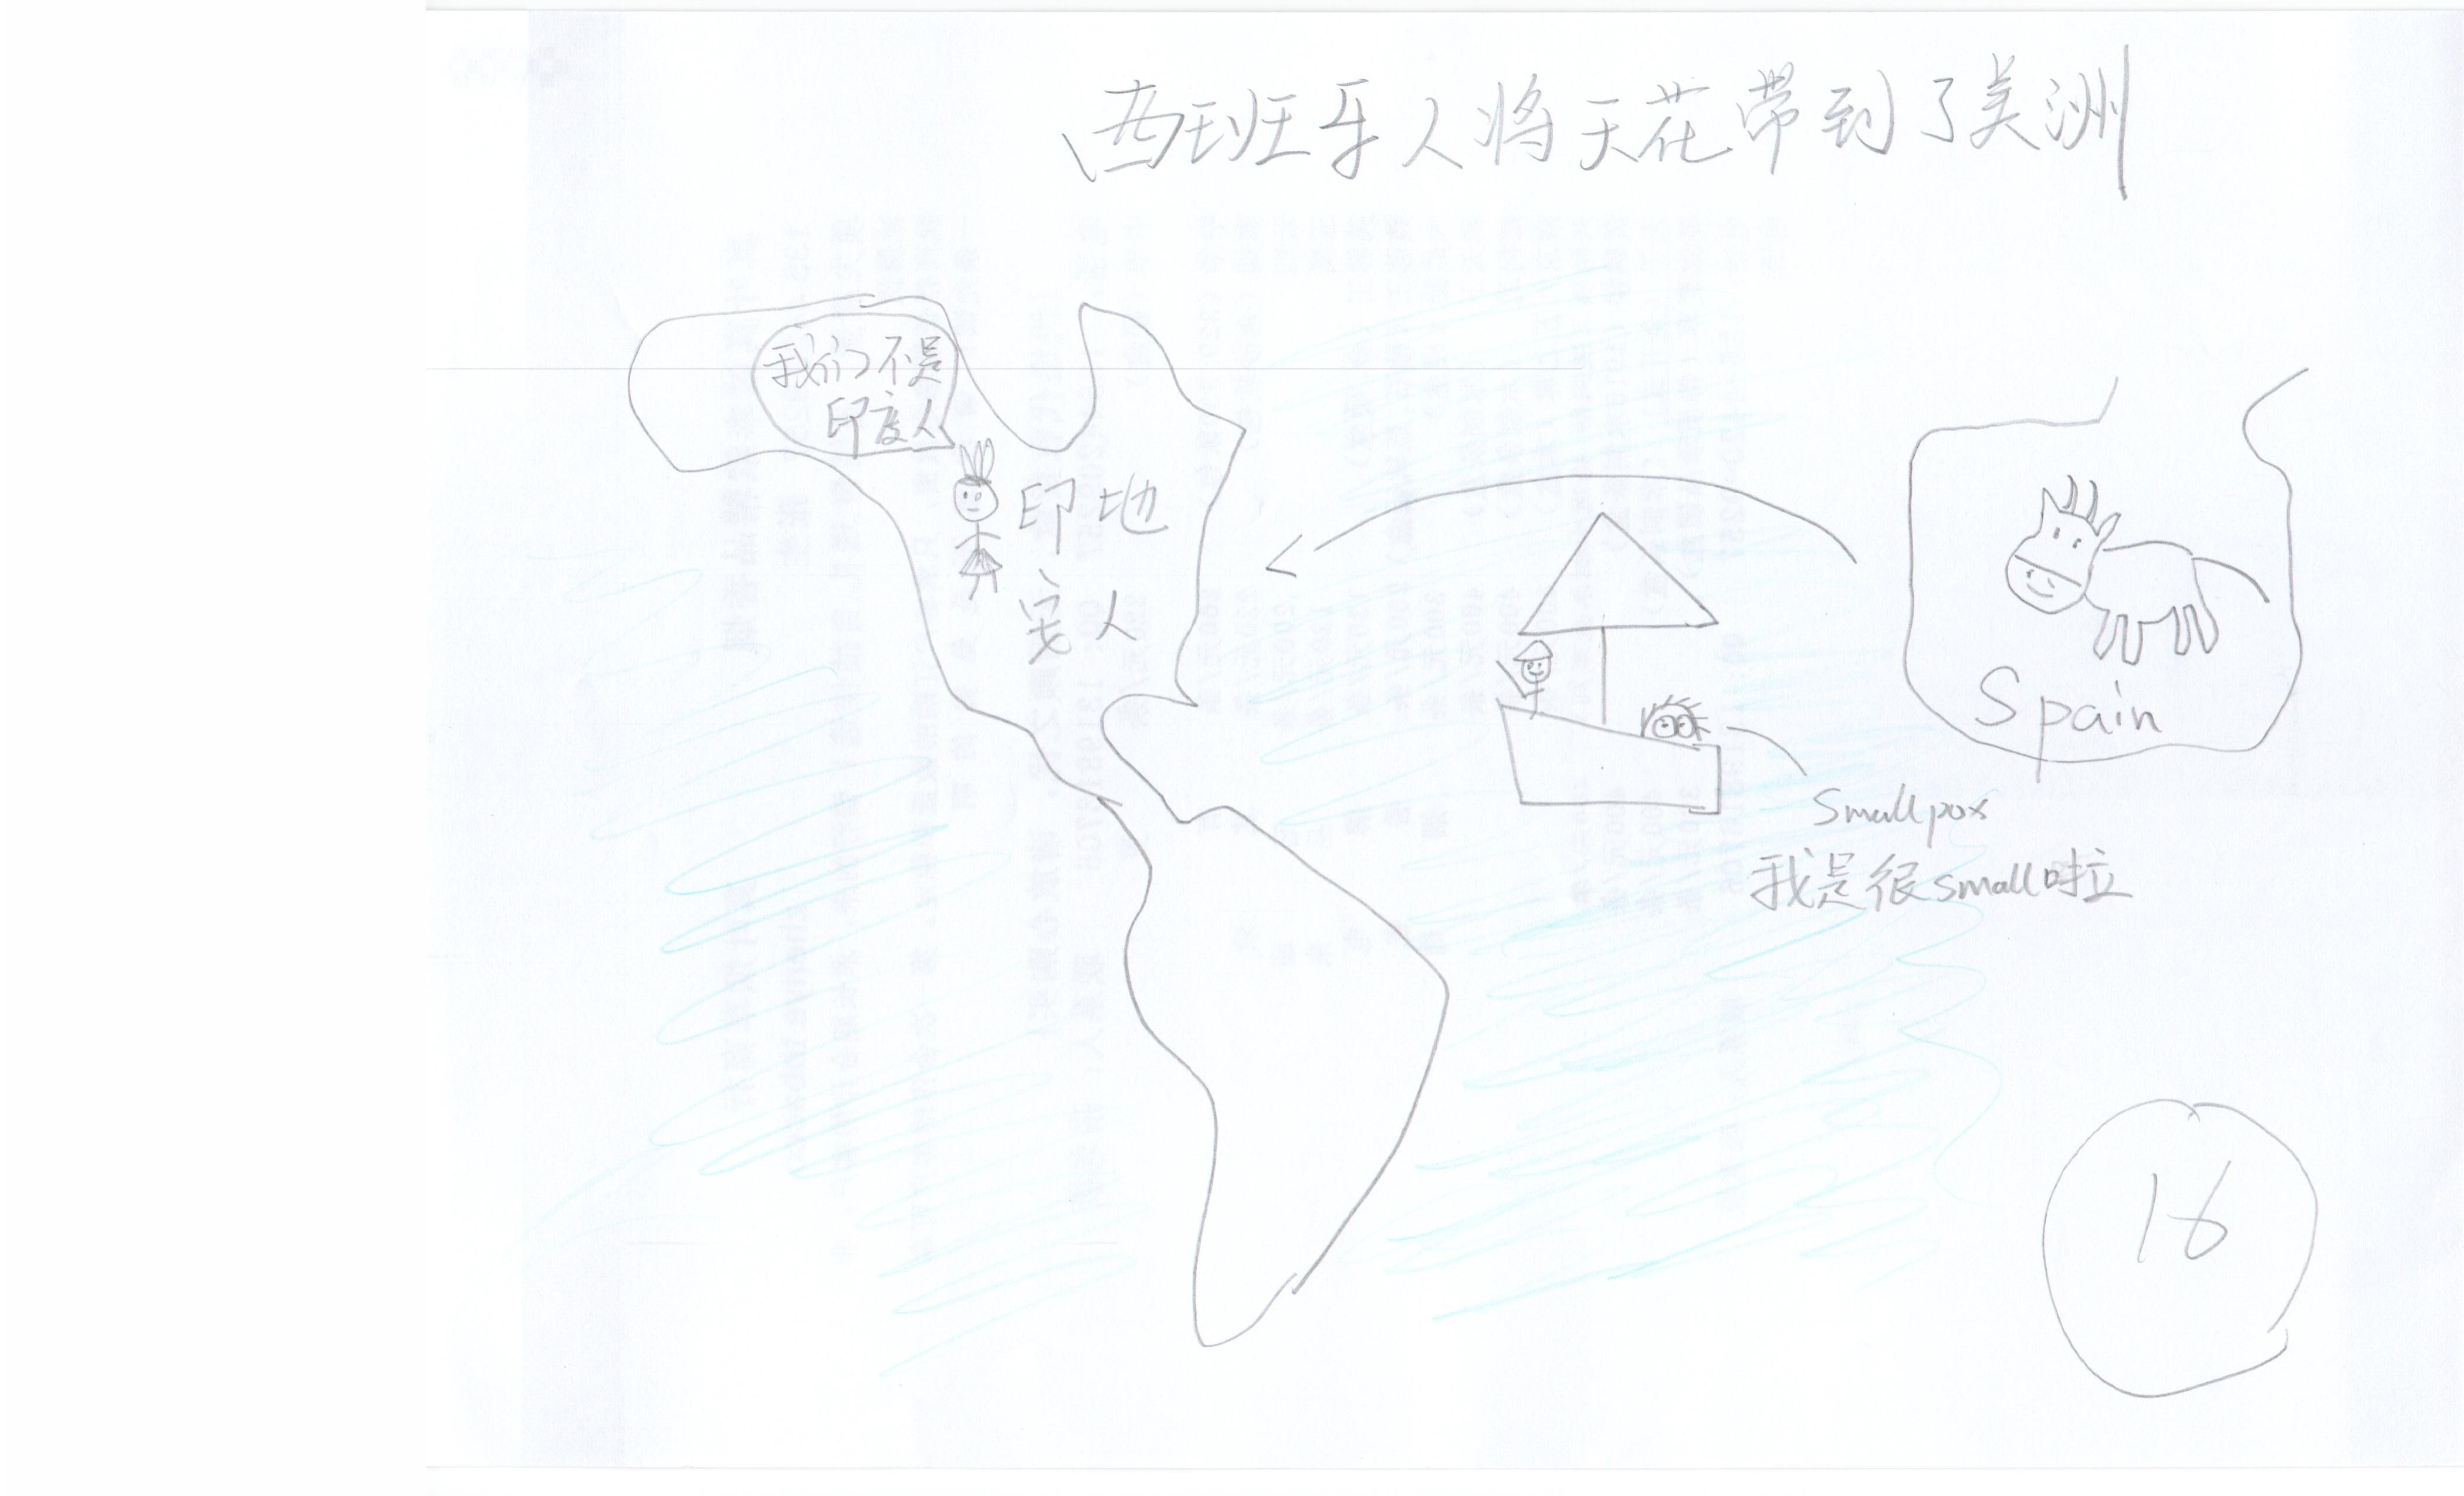 西班牙人将天花带到了美洲
我们不是
印度人
印地
安人
Spain
Smallpox
我是很small啦
16